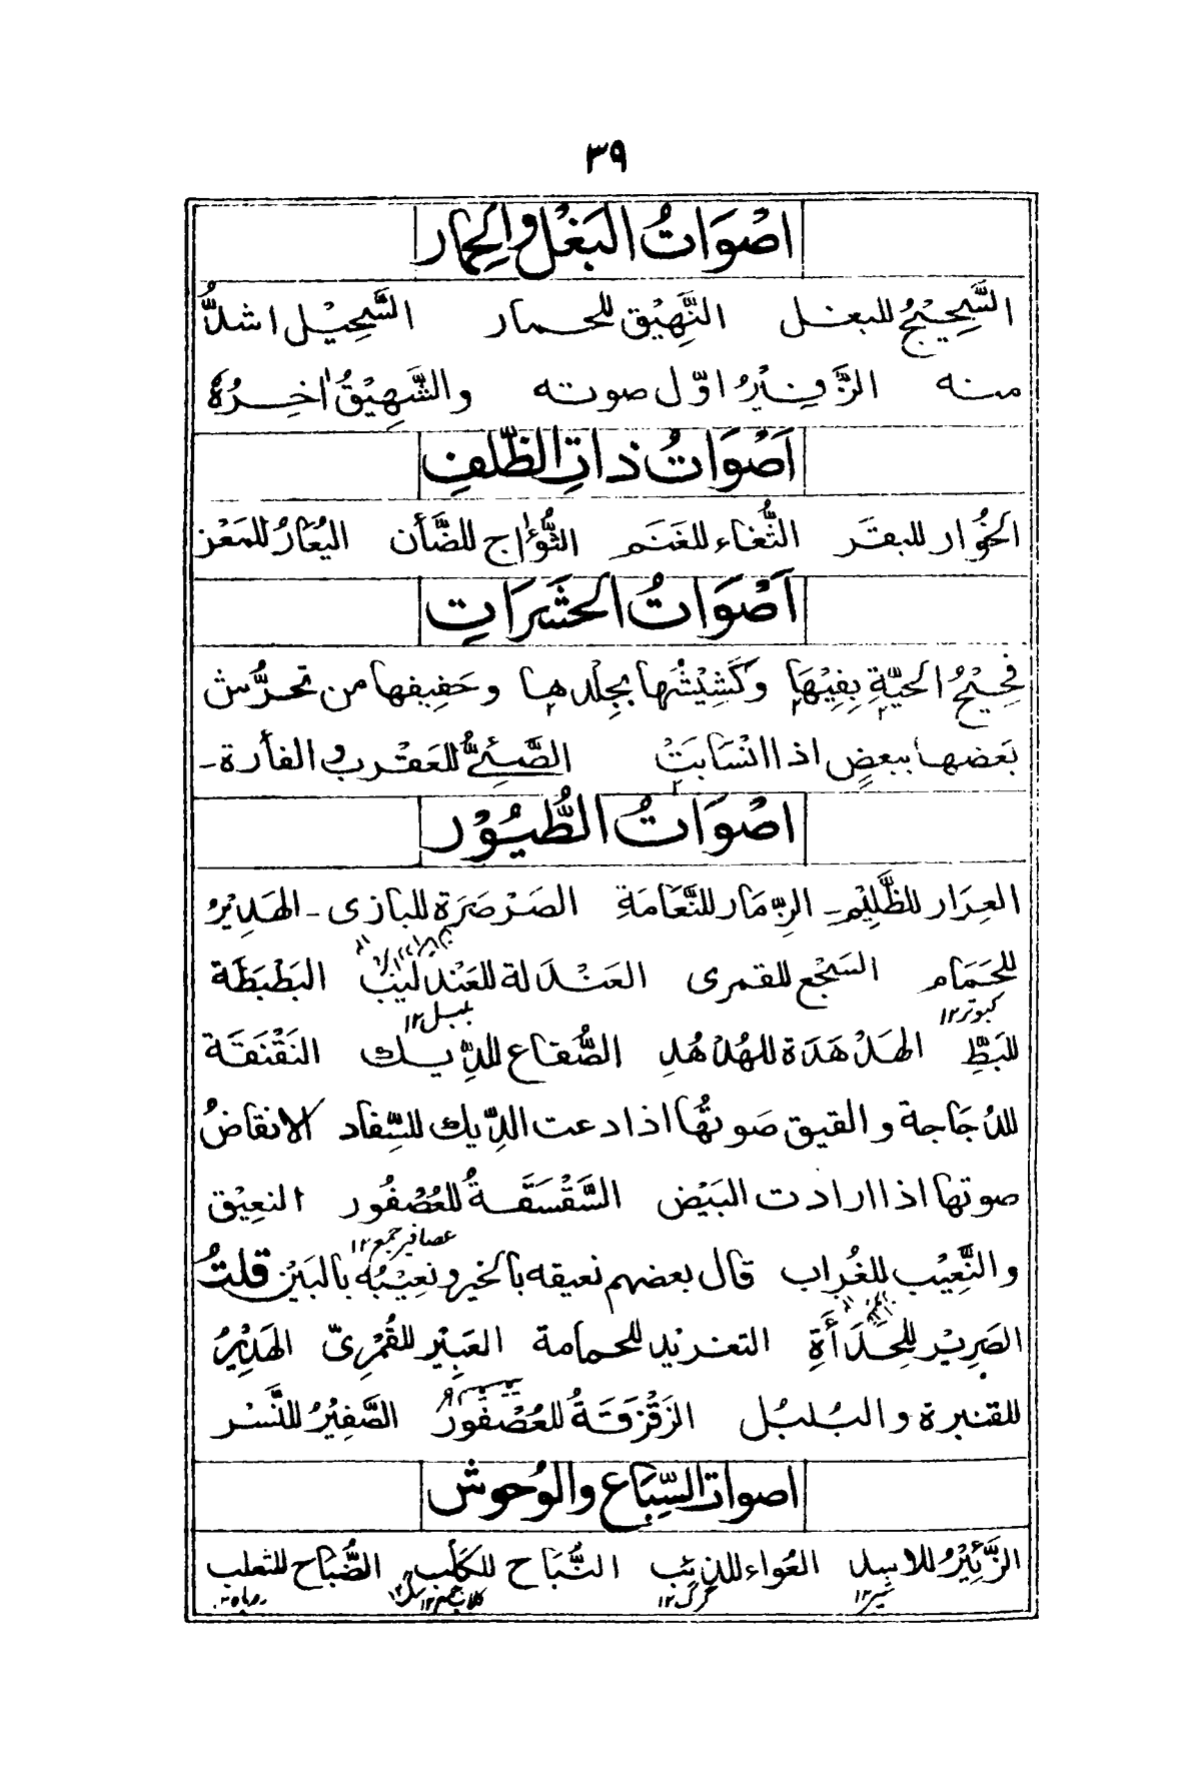 ٣٩
اصْوَاتُ البَغْل والحِمَار
السَّحِيْجُ للبغل النَّهِيْق للحمار السَّحِيْل اشدُّ
منه الزَّفِيْرُ اوّل صوته والشَّهِيْقُ اٰخِرُهٗ
اَصْوَاتُ ذاتِ الظِّلفِ
الخُوَار للبقَر الثُّغاء للغَنَم الثُّؤَاج للضَّأن اليُعَارُ للمَعْز
اَصْوَاتُ الحَشَرَاتِ
فَحِيْحُ الحيّةِ بِفِيْهَا وَكَشِيْشُها بِجِلْدِها وحَفِيفها من تحرُّش
بَعضها ببعضٍ اذا انْسَابَتْ الصَّئِيُّ للعَقْرب و الفأرة ـ
اصْوَاتُ الطُّيُوْر
العِرَار للظَّلِيْم ـ الزِّمَار للنَّعَامَةِ الصَرْصَرَة للبازى ـ الهَدِيْرُ
للحَمَام السَجْع للقمرى العَنْدَلة للعَنْدَلِيْب البَطْبَطَة
كبوتر١٢ بلبل ١٢
للبَطِّ الهَدْهَدَة للهُدْهُدِ الصُّقاع للدِّيك النَقْنَقَة
للدُجَاجة والقيق صَوتُها اذا دعت الدِّيك للسِّفاد الانقاضُ
صوتها اذا ارادت البَيْض السَّقْسَقَةُ للعُصْفُور النعِيْق
عصافير جمع ١٢
والنَّعِيْب للغُراب قال بعضهم نعيقه بالخير ونعِيْبُه بالبَيْن قلتُ
الصَرِيْر للحِدَأَةِ التغريد للحمامة العَبِيْر للقُمْرِىّ الهَدِيْرُ
للقنبرة والبُلبُل الزَقْزَقَةُ للعُصْفُوْرُ الصَّفِيْرُ للنَّسْر
اصواتُ السِّبَاع والوُحوش
الزَّئِيْرُ للاسد العُواء للذِئب النُّبَاح للكَلْب الضُّبَاح للثعلب
شير١٢ گرگ ١٢